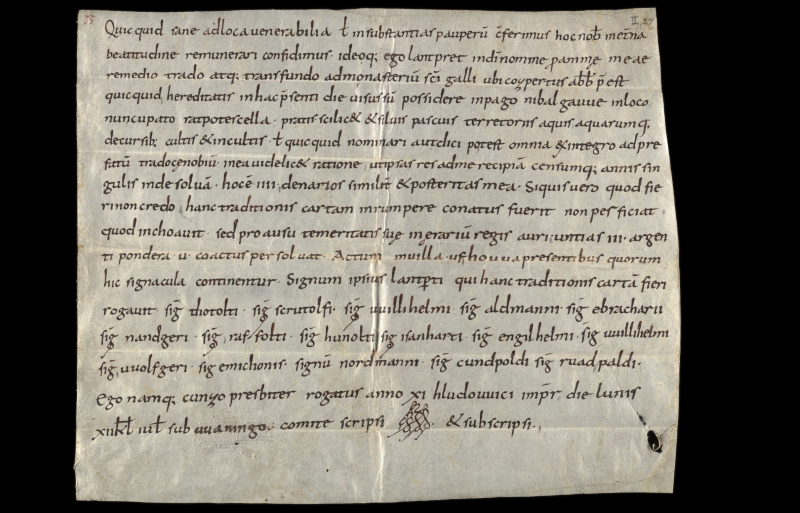 33
II, 27
Quicquid sane ad loca venerabilia ł in substantias pauperū c̄ferimus hoc nob̄ in et̄na
beatitudine remunerari confidimus · ideoq; ego lantpret in dī nomine p animę meae
remedio trado atq; transfundo ad monasteriū sc̄i galli ubi cozpertus abb̄ p̄est
quicquid hereditatis in hac p̄senti die visus sū possidere in pago nibalgauue in loco
nuncupato ratpotescella · pratis scilic& & silvis pascuis terretoriis aquis aquarumq;
decursib; cultis & incultis · ł quicquid nominari aut dici potest omnia & integro ad pre
fatū trado cęnobiū in ea videlic& ratione, ut ipsas res ad me recipiā censumq; annis sin
gulis inde solvā · hoc ē IIII, denarios similit̄ & posteritas mea · Si quis vero quod fie
ri non credo, hanc traditionis cartam inrumpere conatus fuerit non perficiat ·
quod inchoavit · sed pro ausu temeritatis suę in erariū regis auri untias III · argen
ti pondera v · coactus persolvat · Actum in villa ufhovua presentibus quorum
hic signacula continentur · Signum ipsius lantp̄ti qui hanc traditionis cartā fieri
rogavit siḡ thotolti · siḡ scrutolfi · siḡ vvillihelmi siḡ aldmanni · siḡ ebracharii
siḡ nandgeri · siḡ, raffolti · siḡ hunolti sig isanharti · siḡ engilhelmi · sig vvillihelmi
siḡ, vvolfgeri · sig emichonis · signū nordmanni · siḡ cundpoldi siḡ ruadpaldi ·
Ego namq; cunzo presbiter rogatus anno XI hludouuici imp̄r, die lunis
XII kł iuł sub vvaningo, comite scripsi & subscripsi ·